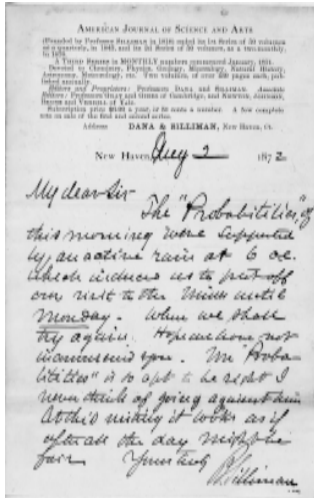 AMERICAN JOURNAL OF SCIENCE AND ARTS
(Founded by Professor SILLIMAN in 1818) ended its 1st Series of 50 volumes
as a quarterly, in 1845, and its 2d Series of 50 volumes, as a two-monthly,
in 1870.
A THIRD SERIES in MONTHLY numbers commenced January, 1871.
Devoted to Chemistry, Physics, Geology, Mineralogy, Natural History,
Astronomy, Meteorology, etc. Two volumes, of over 450 pages each, published annually.
Editors and Proprietors: Professors DANA and SILLIMAN. Associate
Editors: Professors GRAY and GIBBS of Cambridge, and NEWTON, JOHNSON,
BRUSH and VERRILL of Yale.
Subscription price $6.00 a year, or 50 cents a number. A few complete
sets on sale of the first and second series.
Address DANA & SILLIMAN, New Haven, Ct.
New Haven, Aug 2 1872
My dear Sir
The "Probabilities" of
this morning were supported
by an active rain at 6 oc.
which induced us to put off
our visit to the until
Monday. When we shall
try again. Hope we have not
incommoded you. "Proba-
bilities" is so apt to be right I
never think of going against him
At this writing it looks as if
after all the day might be
fair Yours truly
B. Silliman